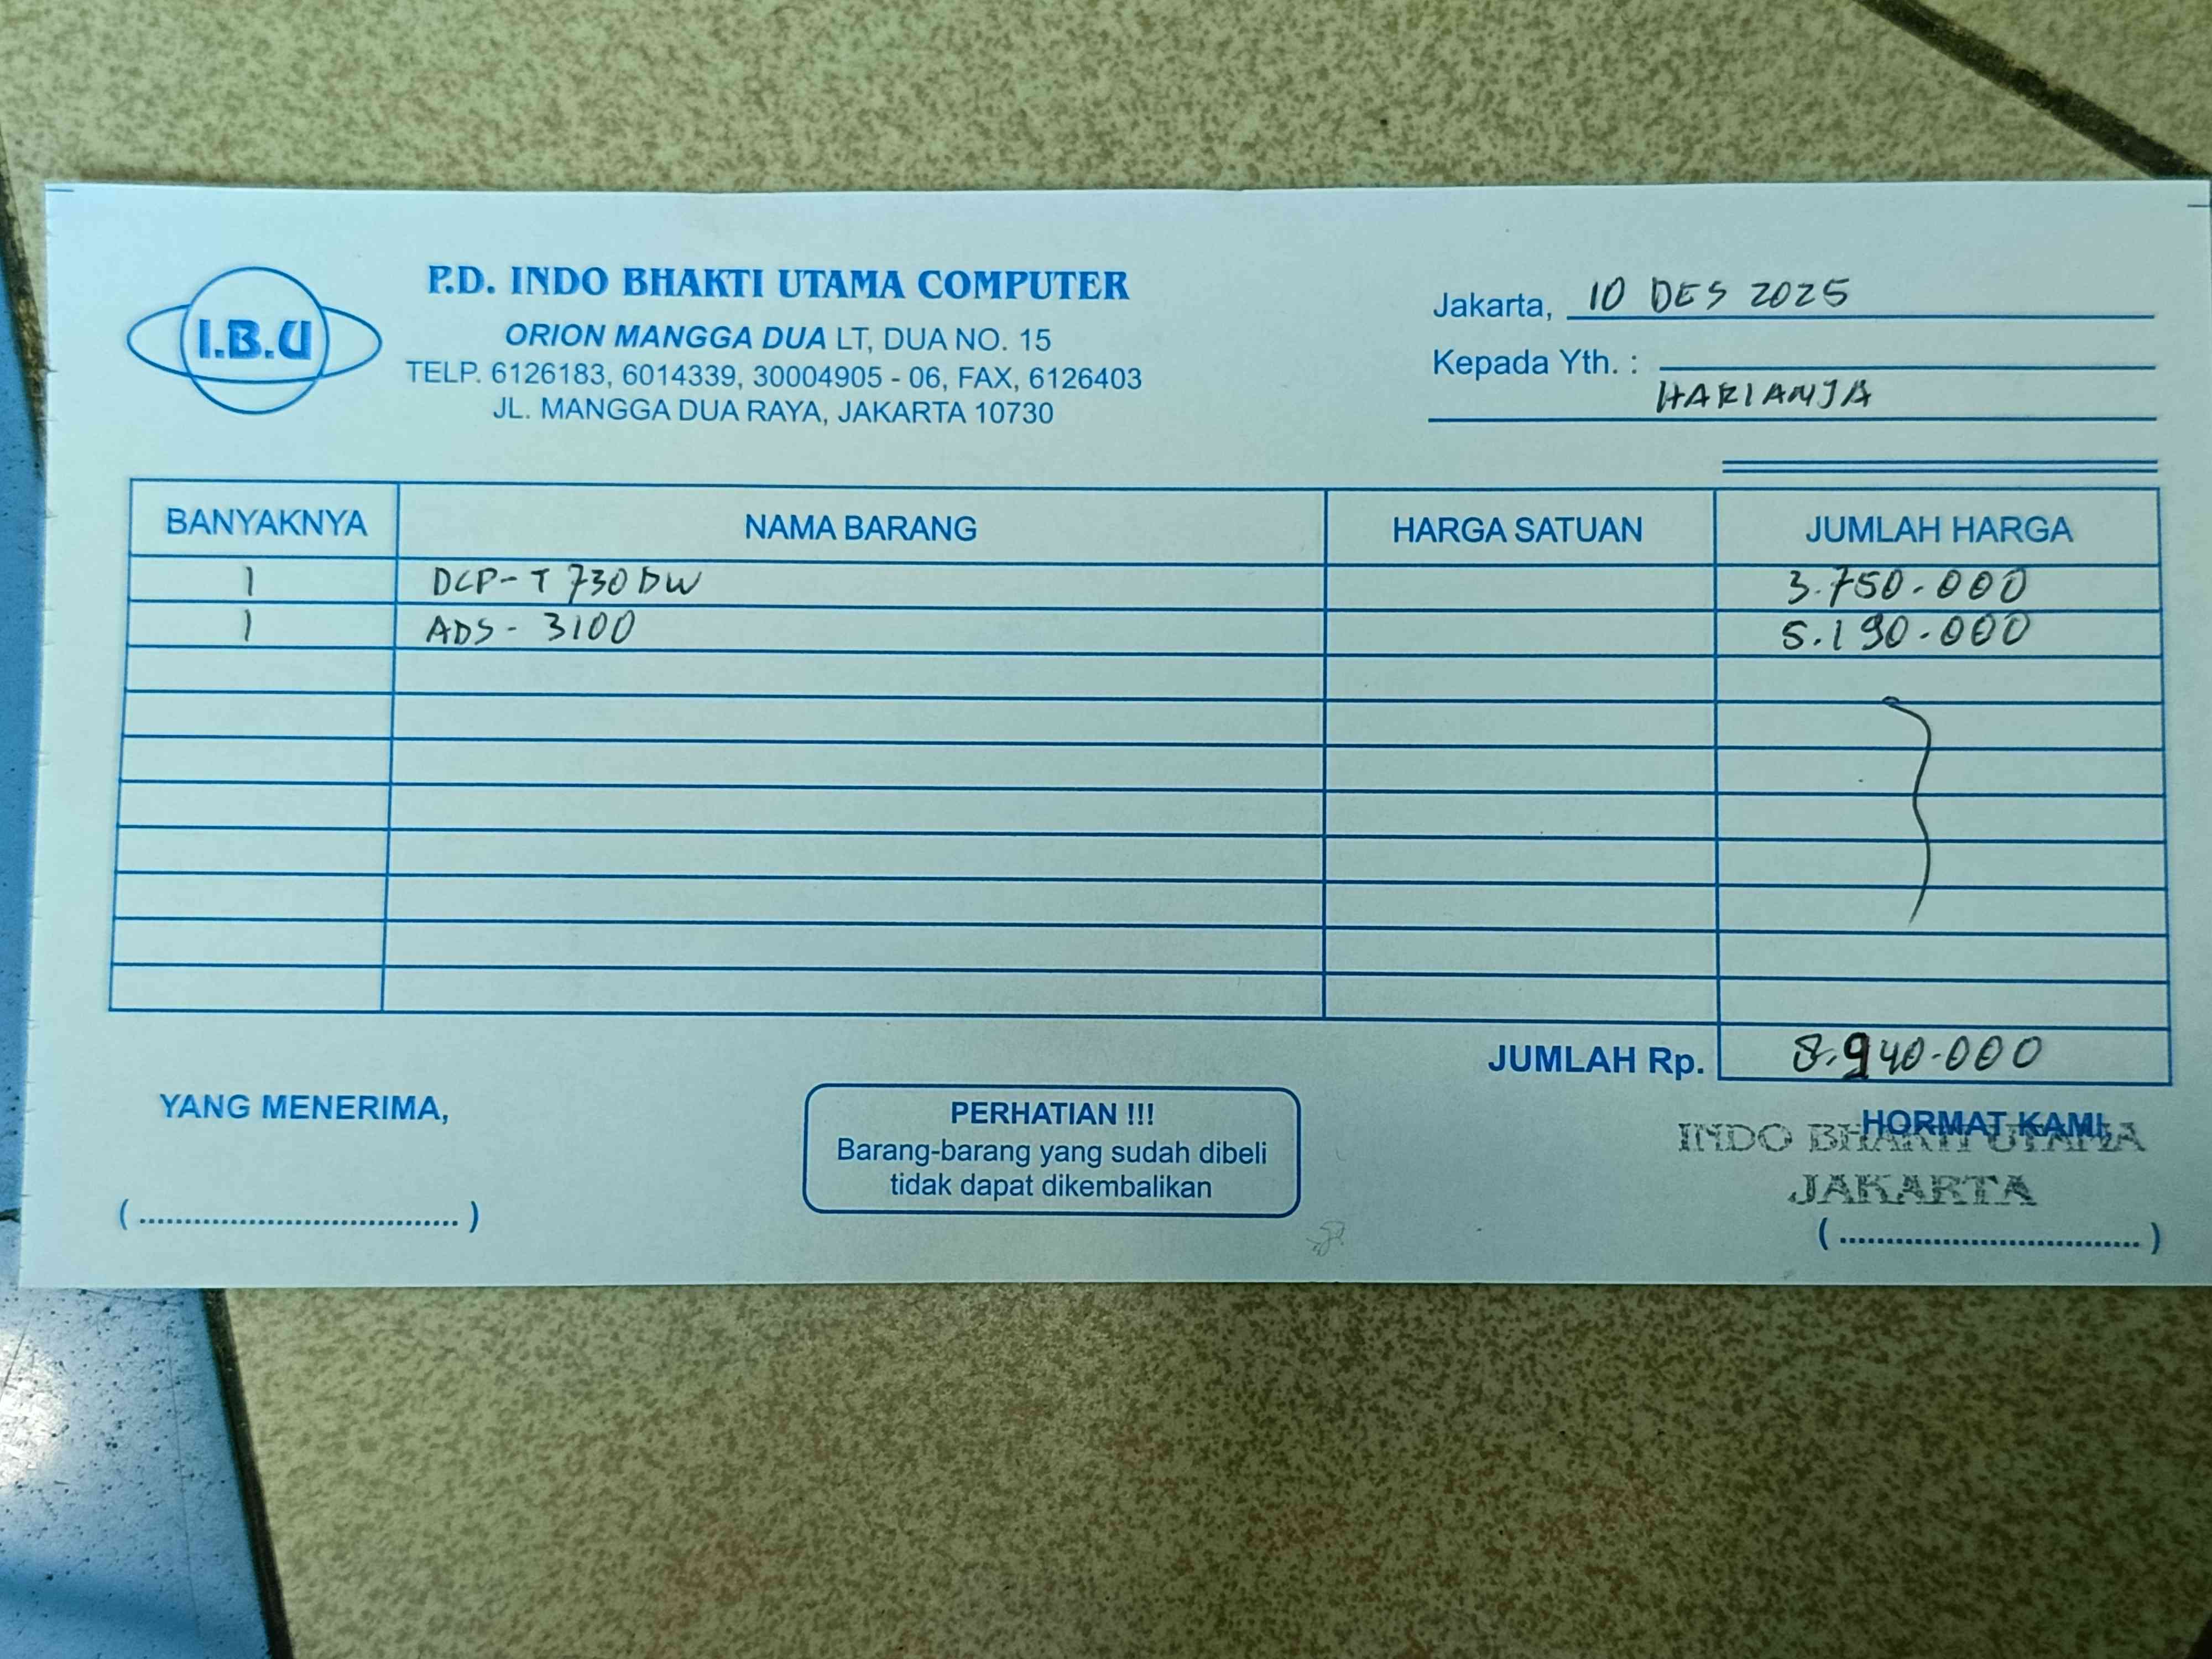 I.B.U
P.D. INDO BHAKTI UTAMA COMPUTER
ORION MANGGA DUA LT, DUA NO. 15
TELP. 6126183, 6014339, 30004905 - 06, FAX, 6126403
JL. MANGGA DUA RAYA, JAKARTA 10730
Jakarta, 10 DES 2025
Kepada Yth. :
HARIANJA
BANYAKNYA NAMA BARANG HARGA SATUAN JUMLAH HARGA
1 DCP-T 730DW 3.750.000
1 ADS-3100 5.190.000
JUMLAH Rp. 8.940.000
YANG MENERIMA,
(....................................)
PERHATIAN !!!
Barang-barang yang sudah dibeli
tidak dapat dikembalikan
HORMAT KAMI,
INDO BHAKTI UTAMA
JAKARTA
(....................................)